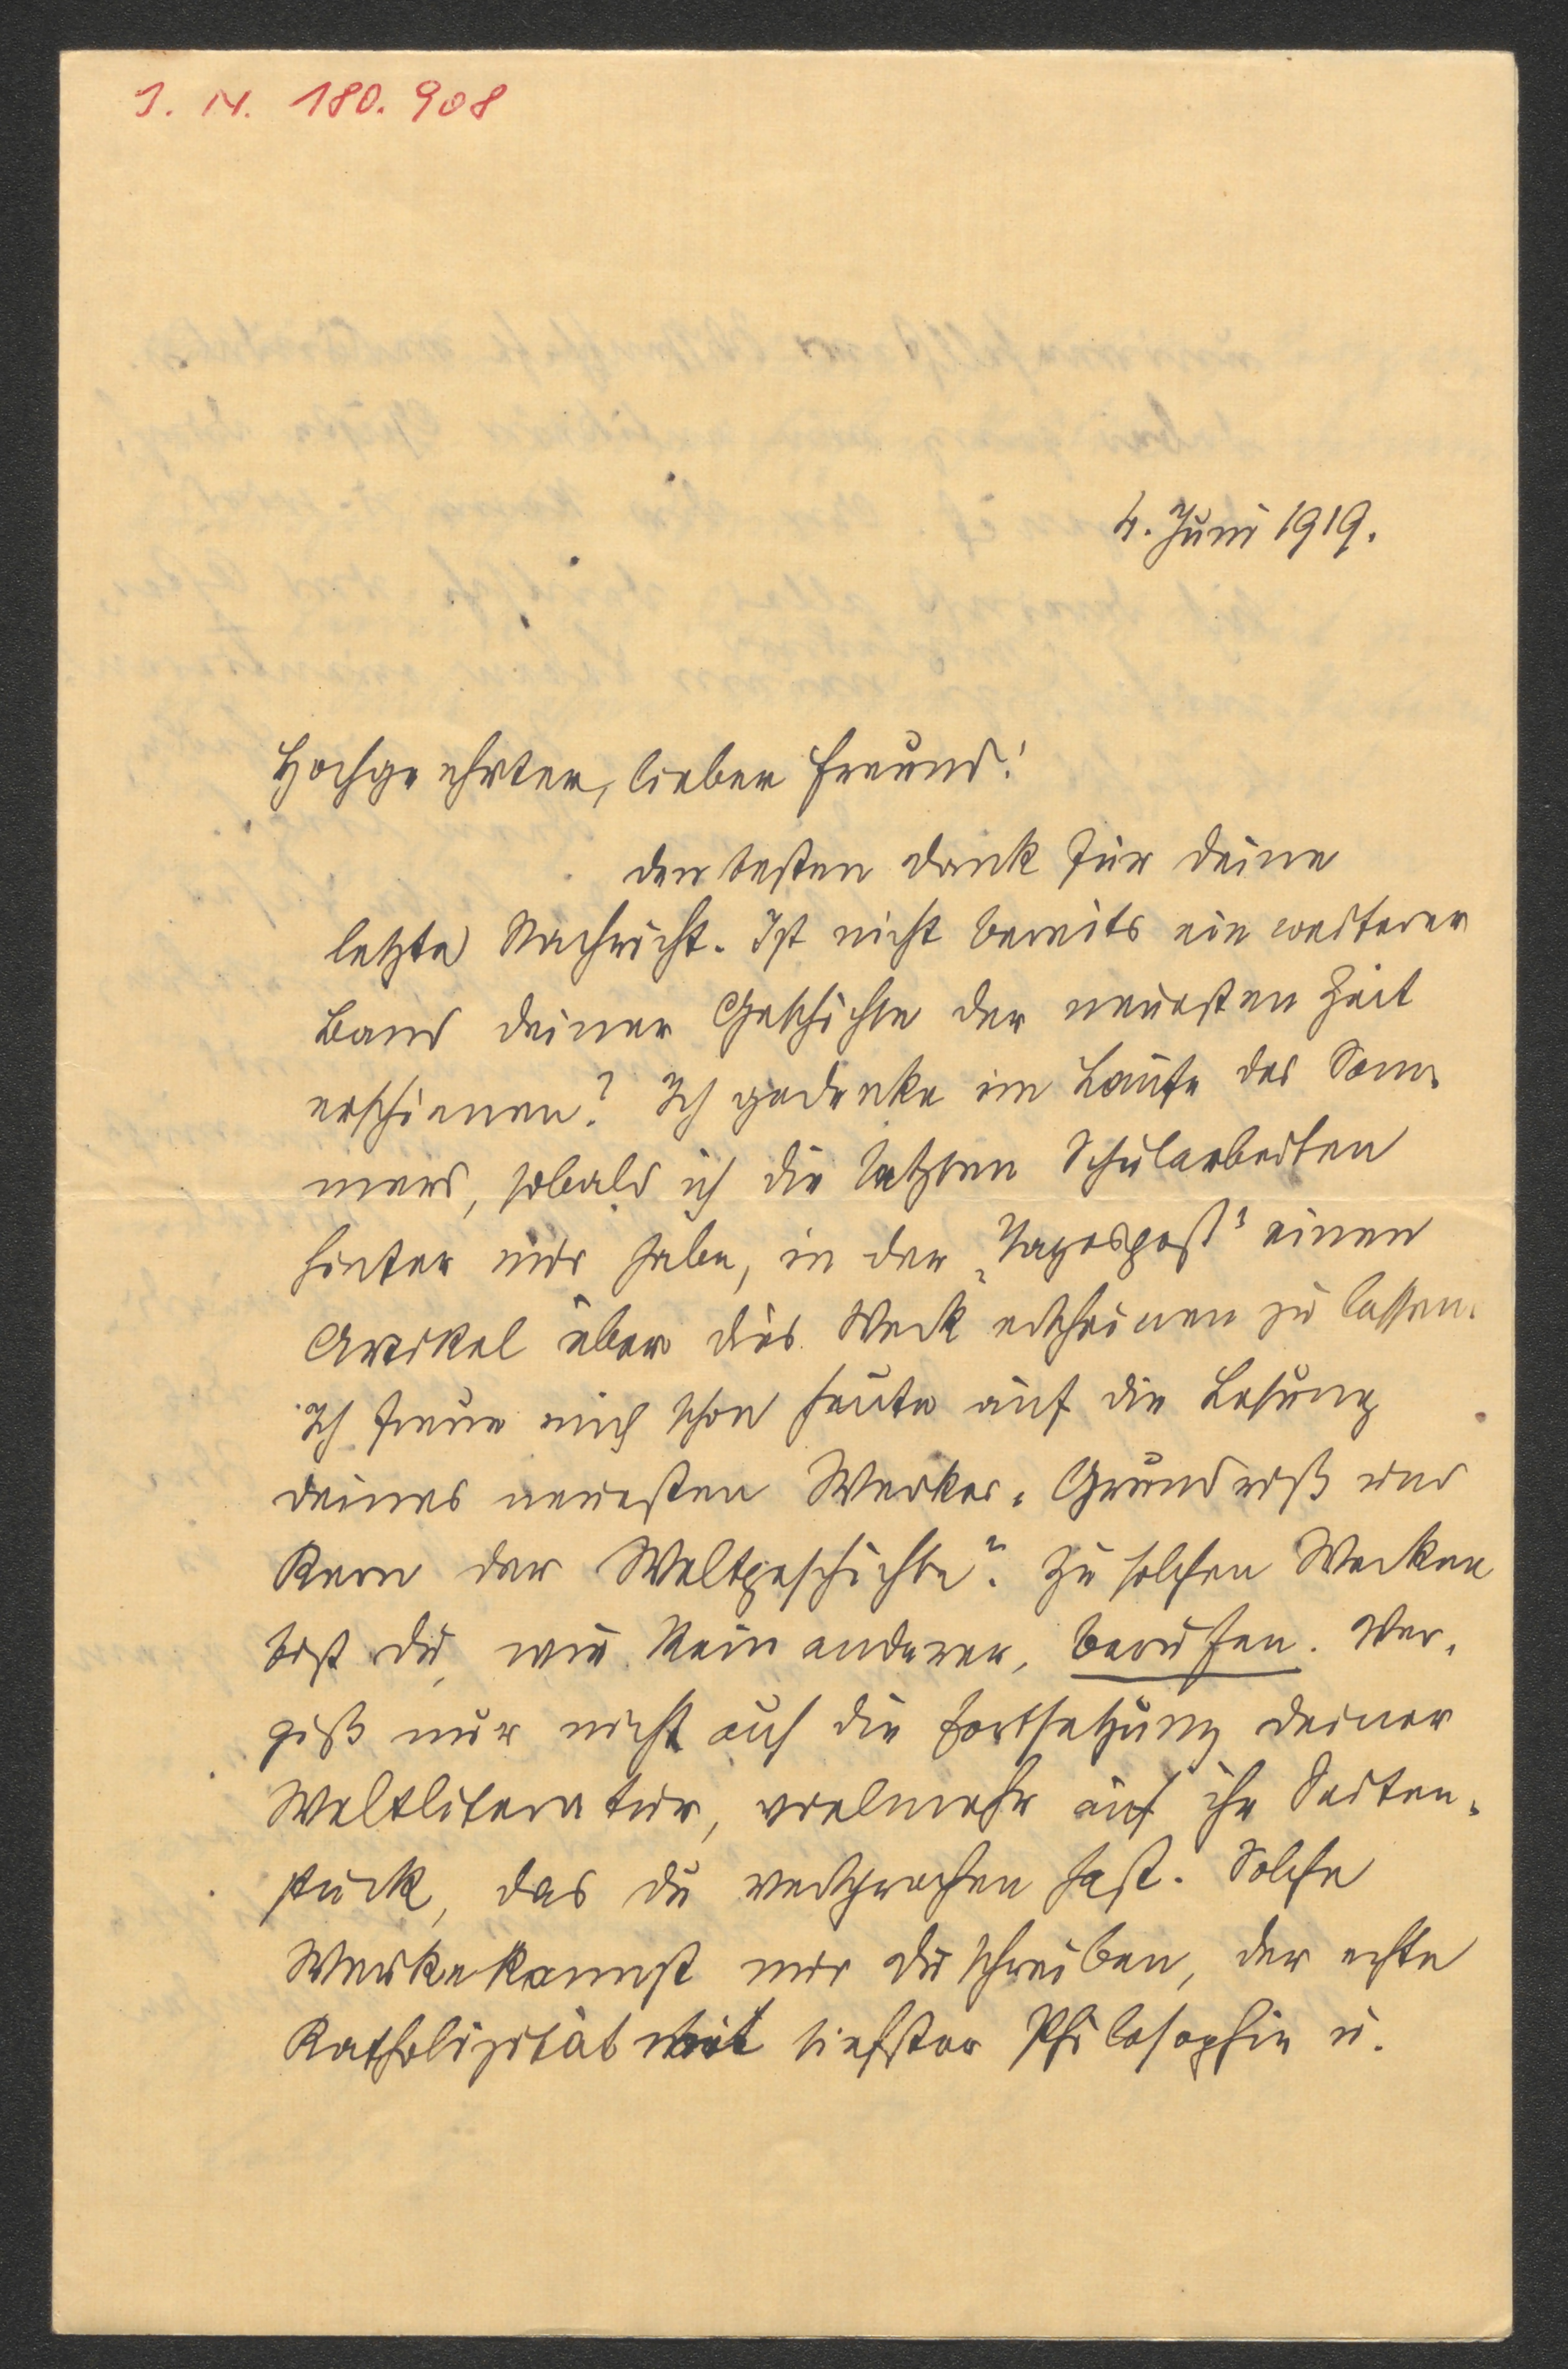 I. N. 180.908
4. Juni 1919.
Hochgeehrter, lieber Freund!
den besten Dank für deine
letzte Nachricht. Ist nicht bereits ein weiterer
Band deiner Geschichte der neuesten Zeit
erschienen? Ich gedenke im Laufe des Som-
mers, sobald ich die letzten Schularbeiten
hinter mir habe, in der „Tagespost" einen
Artikel über dies Werk erscheinen zu lassen.
Ich freue mich schon heute auf die Lesung
deines neuesten Werkes „Grundriß und
Kern der Weltgeschichte". Zu solchen Werken
bist du, wie kein anderer, berufen. Ver-
giß nur nicht auf die Fortsetzung deiner
Weltliteratur, vielmehr auf ihr Seiten-
stück, das du versprochen hast. Solche
Werke kannst nur du schreiben, der echte
Katholizität mit tiefster Philosophie u.